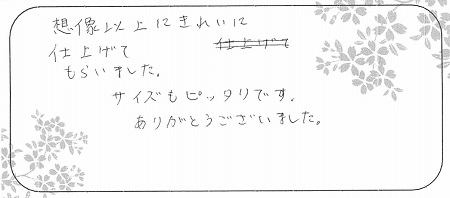 想像以上にきれいに
仕上げて
仕上げて
もらいました。
サイズもピッタリです。
ありがとうございました。